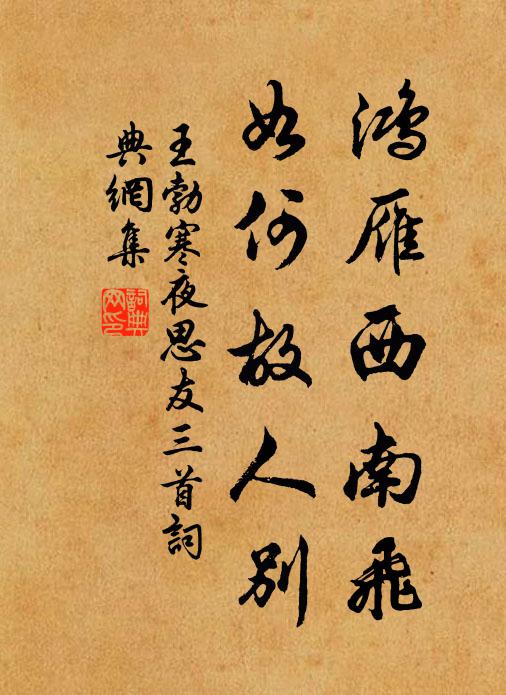 鸿雁西南飛
如何故人別
王勃寒夜思友三首詞
典網集
詞典
网印